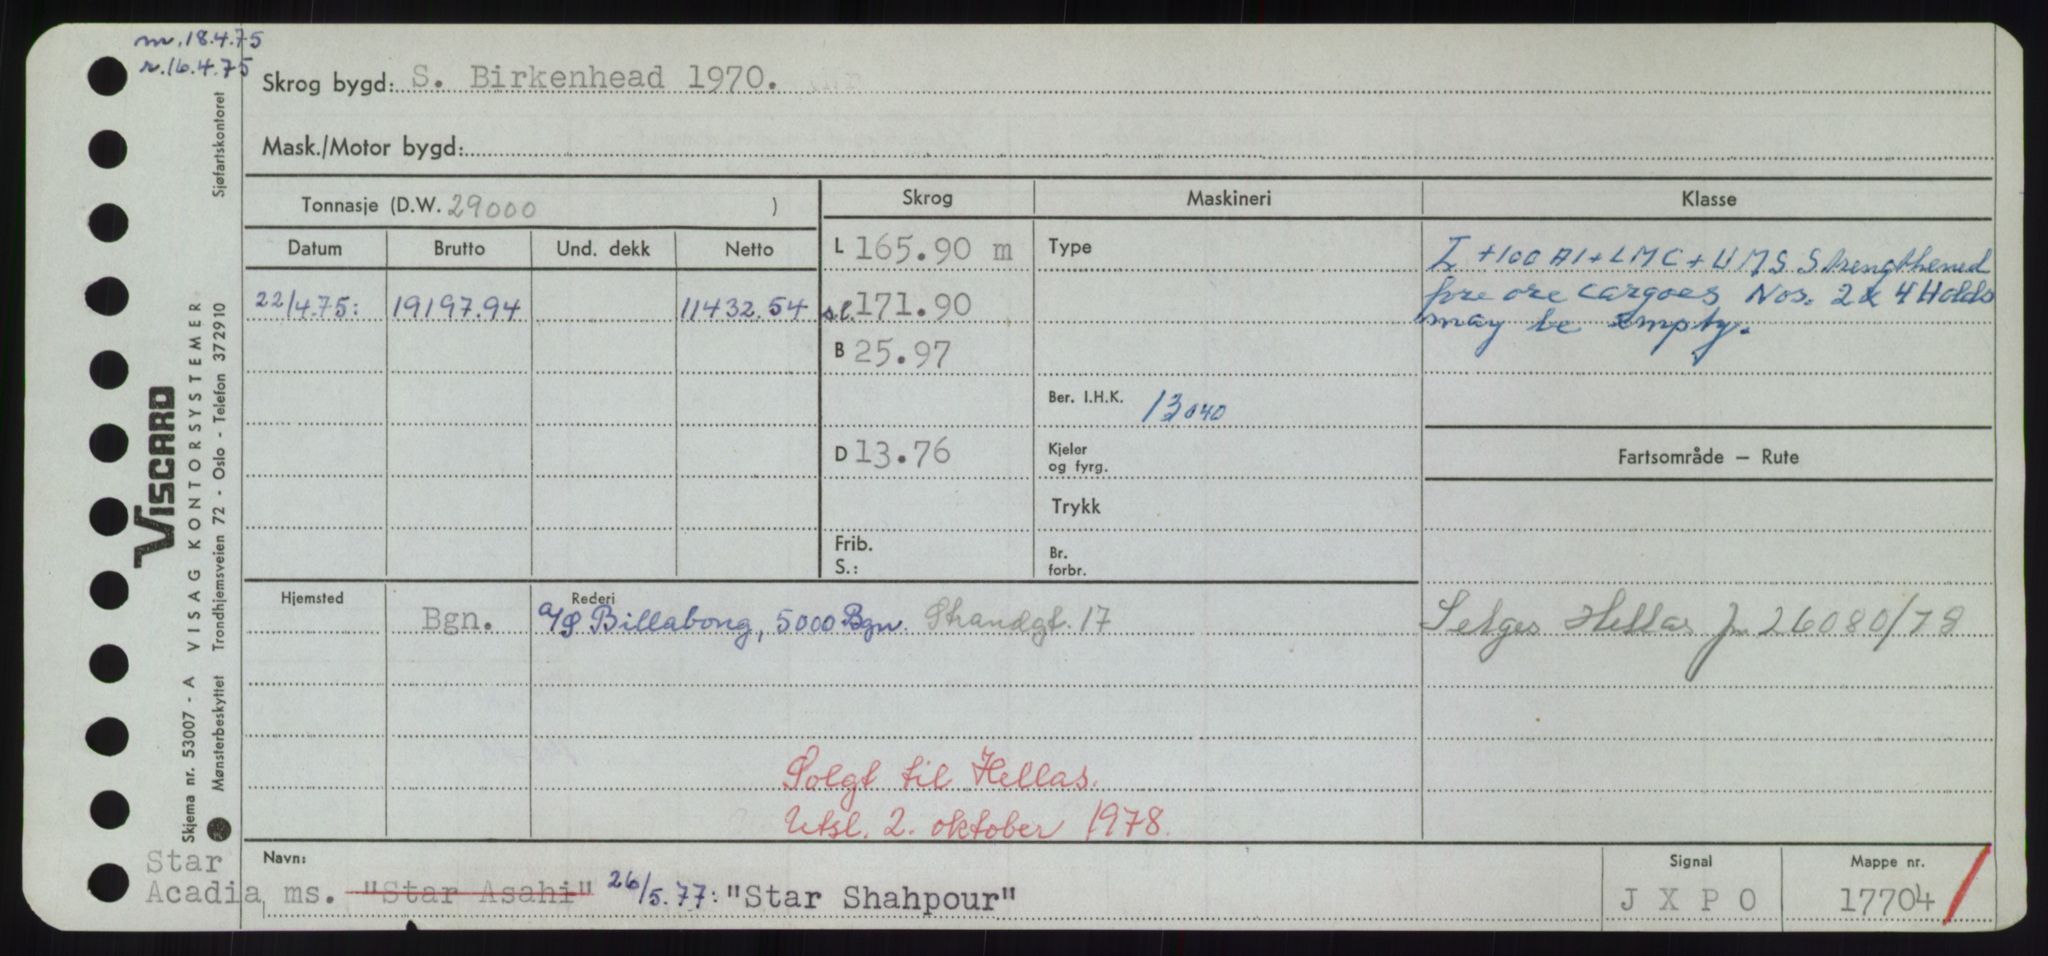 m. 18.4.75
r. 16.4.75
Skrog bygd: S. Birkenhead 1970.
Mask./Motor bygd:
Tonnasje (D.W. 29000 )
Skrog Maskineri Klasse
Datum Brutto Und. dekk Netto
L 165.90 m
Type
I +100 A1 + LMC + UMS Strengthened
fore ore cargoes Nos. 2 & 4 Holds
may be empty.
22/4.75: 19197.94 11432.54
s.l. 171.90
B 25.97
Ber. I.H.K. 13040
D 13.76
Kjeler
og fyrg.
Fartsområde — Rute
Trykk
Frib.
S.:
Br.
forbr.
Hjemsted Rederi
Bgn. A/S Billabong, 5000 Bgn. Strandgt. 17
Selges Hellas Jn 26080/78
Solgt til Hellas.
Utsl. 2. oktober 1978.
Navn: Signal Mappe nr.
Star
Acadia ms. "Star Asahi" 26/5.77: "Star Shahpour"
J X P O 17704
VISCARD
Skjema nr. 53007 - A VISAG KONTORSYSTEMER
Mønsterbeskyttet Trondhjemsveien 72 - Oslo - Telefon 372910 Sjøfartskontoret